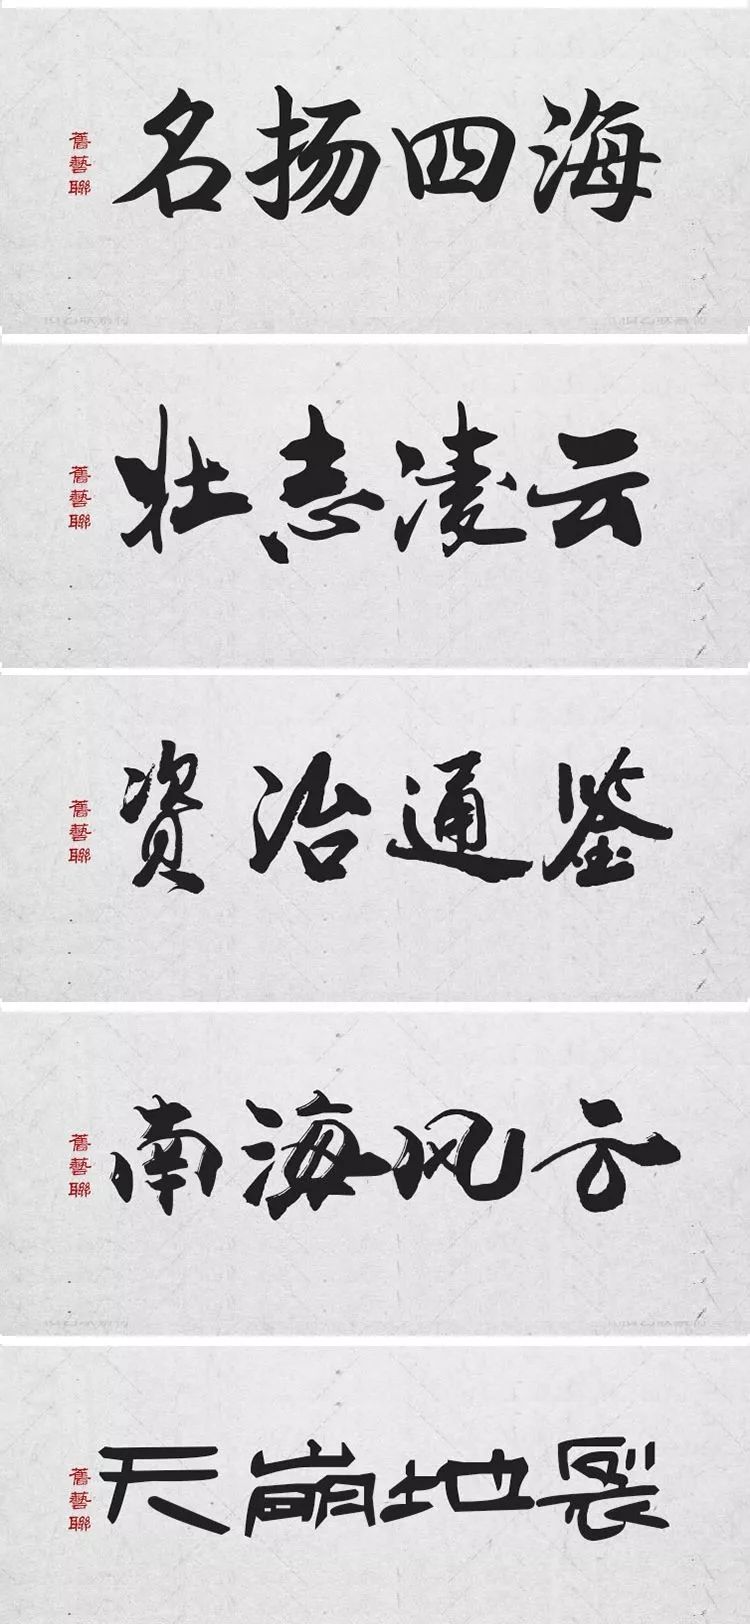 舊藝聯
名扬四海
舊藝聯
壮志凌云
舊藝聯
资治通鉴
舊藝聯
南海风云
舊藝聯
天崩地裂